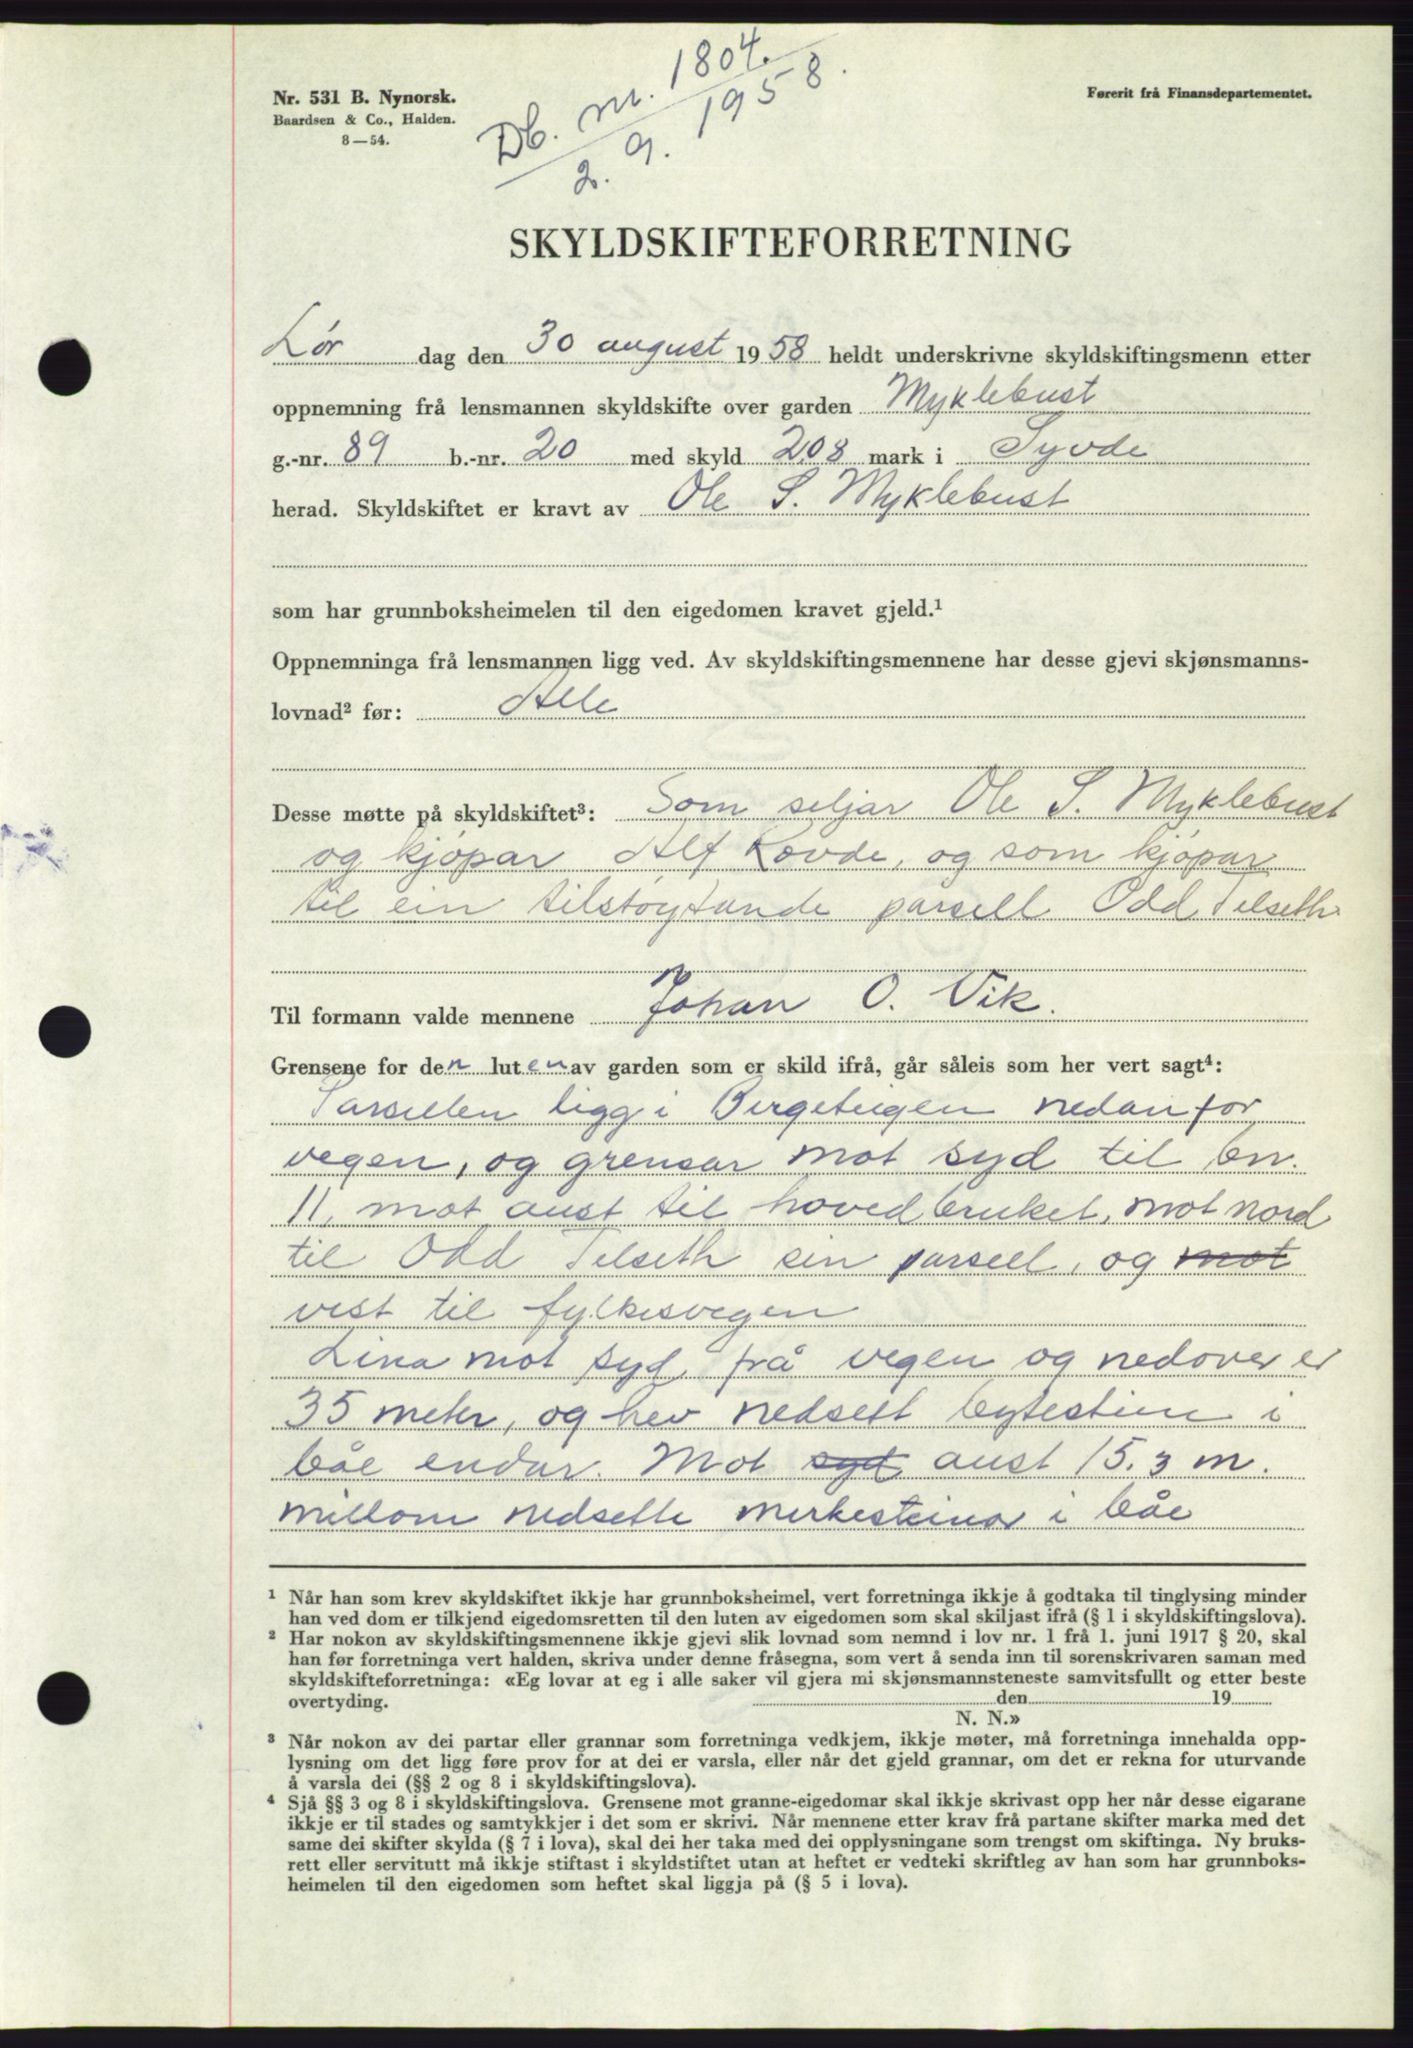 Db. nr. 1804.
2. 9. 1958.
Nr. 531 B. Nynorsk.
Baardsen & Co., Halden.
8—54.
Førerit frå Finansdepartementet.
SKYLDSKIFTEFORRETNING
Lør dag den 30 august 1958 heldt underskrivne skyldskiftingsmenn etter
oppnemning frå lensmannen skyldskifte over garden Myklebust
g.-nr. 89 b.-nr. 20 med skyld 2,08 mark i Syvde
herad. Skyldskiftet er kravt av Ole S. Myklebust
som har grunnboksheimelen til den eigedomen kravet gjeld.¹
Oppnemninga frå lensmannen ligg ved. Av skyldskiftingsmennene har desse gjevi skjønsmanns-
lovnad² før: Alle
Desse møtte på skyldskiftet³: Som seljar Ole S. Myklebust
og kjøpar Alf Rovde, og som kjøpar
til ein tilstøytande parsell Odd Telseth
Til formann valde mennene Johan O. Vik.
Grensene for den luten av garden som er skild ifrå, går såleis som her vert sagt⁴:
Parsellen ligg i Bergeteigen nedanfor
vegen, og grensar mot syd til bn.
11, mot aust til hovedbruket, mot nord
til Odd Telseth sin parsell, og mot
vest til fylkesvegen
Lina mot syd, frå vegen og nedover er
35 meter, og hev nedsett bytestein i
båe endar. Mot syd aust 15.3 m.
millom nedsette merkesteinar i båe
¹ Når han som krev skyldskiftet ikkje har grunnboksheimel, vert forretninga ikkje å godtaka til tinglysing minder
han ved dom er tilkjend eigedomsretten til den luten av eigedomen som skal skiljast ifrå (§ 1 i skyldskiftingslova).
² Har nokon av skyldskiftingsmennene ikkje gjevi slik lovnad som nemnd i lov nr. 1 frå 1. juni 1917 § 20, skal
han før forretninga vert halden, skriva under denne fråsegna, som vert å senda inn til sorenskrivaren saman med
skyldskifteforretninga: «Eg lovar at eg i alle saker vil gjera mi skjønsmannsteneste samvitsfullt og etter beste
overtyding. den 19
N. N.»
³ Når nokon av dei partar eller grannar som forretninga vedkjem, ikkje møter, må forretninga innehalda opp-
lysning om det ligg føre prov for at dei er varsla, eller når det gjeld grannar, om det er rekna for uturvande
å varsla dei (§§ 2 og 8 i skyldskiftingslova).
⁴ Sjå §§ 3 og 8 i skyldskiftingslova. Grensene mot granne-eigedomar skal ikkje skrivast opp her når desse eigarane
ikkje er til stades og samtykkjer i det som er skrivi. Når mennene etter krav frå partane skifter marka med det
same dei skifter skylda (§ 7 i lova), skal dei her taka med dei opplysningane som trengst om skiftinga. Ny bruks-
rett eller servitutt må ikkje stiftast i skyldstiftet utan at heftet er vedteki skriftleg av han som har grunnboks-
heimelen til den eigedomen som heftet skal liggja på (§ 5 i lova).